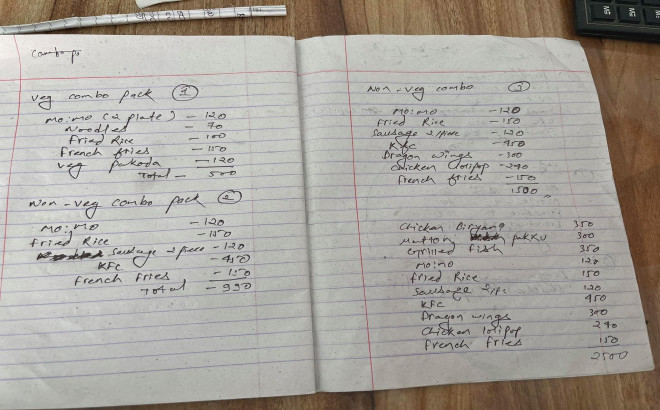 Combo pa
Veg combo pack ①
Mo:mo (2 plate) - 120
Noodles - 70
Fried Rice - 100
French fries - 150
Veg pakoda - 120
Total - 500
Non-veg combo pack ②
Mo:Mo - 120
Fried Rice - 150
Sausage 2/piece - 120
KFC - 450
French Fries - 150
Total - 990
Non-veg combo ③
Mo:mo - 120
Fried Rice - 150
Sausage 2/piece - 120
KFC - 450
Dragon wings - 300
Chicken lolipop - 240
French fries - 150
1500
Chicken Biryang 350
Muttong pukku 300
Grilled fish 350
Mo:mo 120
Fried Rice 150
Sausage 2/pc 120
KFC 450
Dragon wings 300
Chicken lolipop 240
French Fries 150
2500